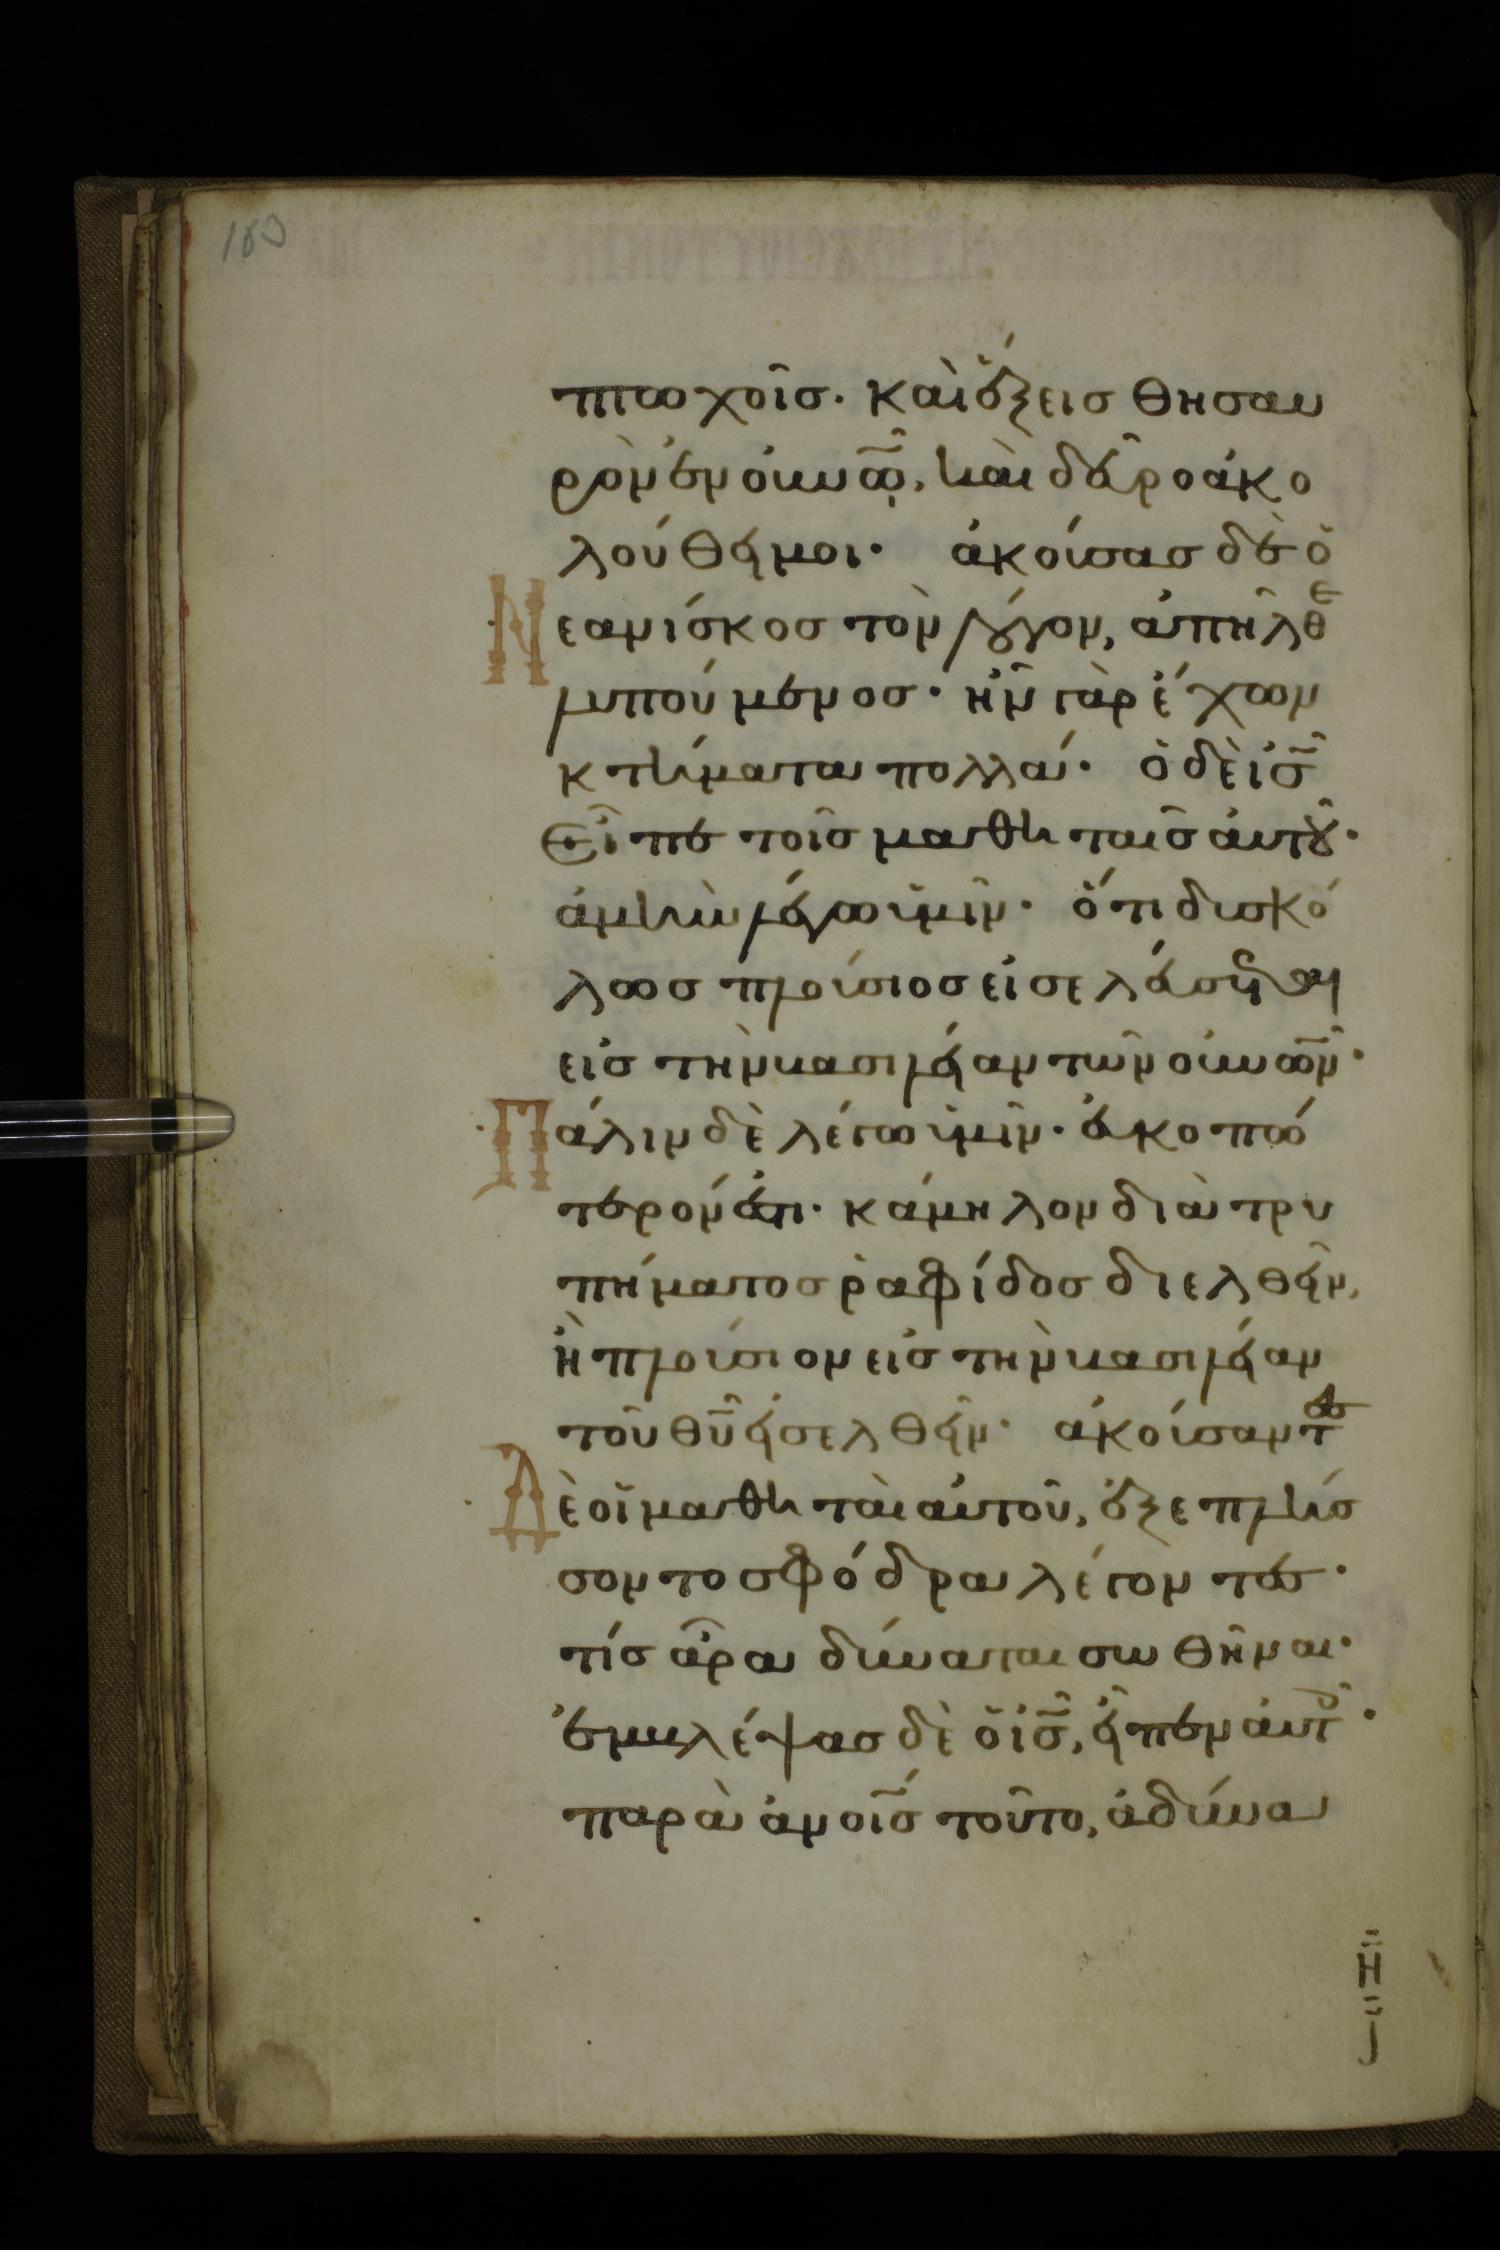 πτωχοῖσ. καὶ ἕξεισ θησαυ
ρὸν ἐν οὐνῶ̣, καὶ δεῦρο ἀκο
λούθει μοι· ἀκούσασ δὲ ὁ
Νεανίσκοσ τὸν λόγον, ἀπῆλθε
λυπούμενοσ· ἦν γὰρ ἔχων
κτήματα πολλά· ὁ δὲ ις̅
Εἶπε τοῖσ μαθηταῖσ αὐτοῦ·
ἀμὴν λέγω ὑμῖν· ὅτι δυσκό
λωσ πλούσιοσ εἰσελεύσεται
εἰσ τὴν βασιλείαν τῶν οὐνῶν·
Πάλιν δὲ λέγω ὑμῖν· εὐκοπώ
τερόν ἐστι· κάμηλον διὰ τρυ
πήματοσ ῥαφίδοσ διελθεῖν,
ἢ πλούσιον εἰσ τὴν βασιλείαν
τοῦ θυ̅ εἰσελθεῖν· ἀκούσαντεσ
Δὲ οἱ μαθηταὶ αὐτοῦ, ἐξεπλήσ
σοντο σφόδρα λέγοντεσ·
τίσ ἄρα δύναται σωθῆναι·
ἐμβλέψασ δὲ ὁ ις̅, εἶπεν αὐτοῖσ·
παρὰ ἀνοισ̅ τοῦτο, ἀδύνα
Η